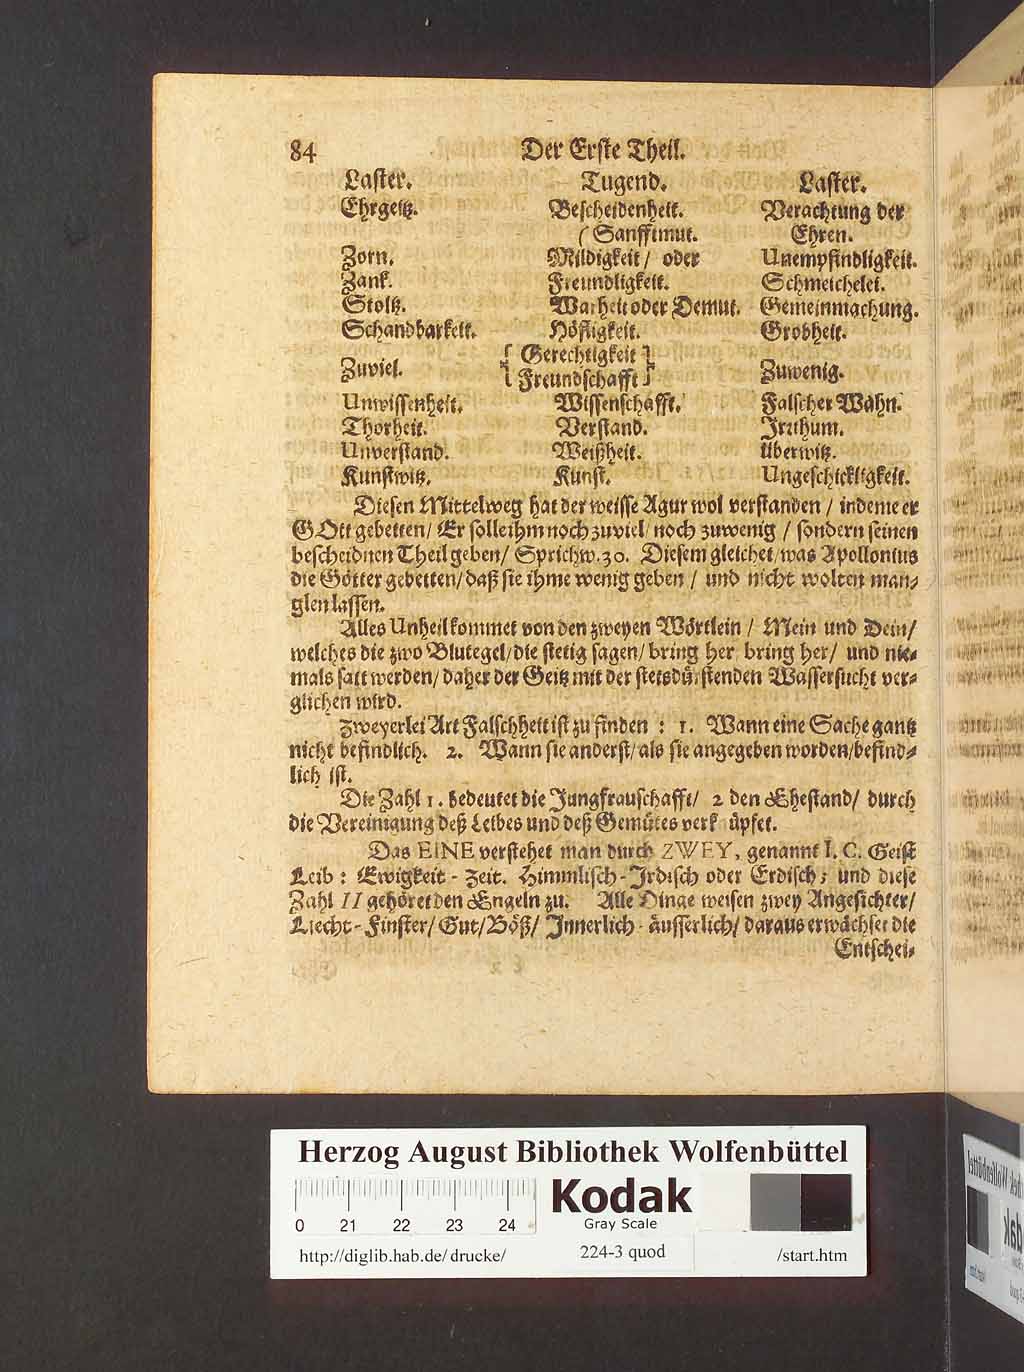 84 Der Erste Theil.
Laster. Tugend. Laster.
Ehrgeitz. Bescheidenheit. Verachtung der
(Sanfftmut. Ehren.
Zorn. Mildigkeit / oder Unempfindligkeit.
Zank. Freundligkeit. Schmeichelei.
Stoltz. Warheit oder Demut. Gemeinmachung.
Schandbarkeit. Höfligkeit. Grobheit.
Zuviel. { Gerechtigkeit } Zuwenig.
{ Freundschafft }
Unwissenheit. Wissenschafft. Falscher Wahn.
Thorheit. Verstand. Irrthum.
Unverstand. Weißheit. überwitz.
Kunstwitz. Kunst. Ungeschickligkeit.
Diesen Mittelweg hat der weisse Agur wol verstanden / indeme er
GOtt gebetten/ Er solle ihm noch zuviel/ noch zuwenig / sondern seinen
bescheidnen Theil geben/ Sprichw. 30. Diesem gleichet/was Apollonius
die Götter gebetten/ daß sie ihme wenig geben / und nicht wolten man-
glen lassen.
Alles Unheil kommet von den zweyen Wörtlein / Mein und Dein/
welches die zwo Blutegel/die stetig sagen/ bring her bring her/ und nie-
mals satt werden/ daher der Geitz mit der stetsdürstenden Wassersucht ver-
glichen wird.
Zweyerlei Art Falschheit ist zu finden : 1. Wann eine Sache gantz
nicht befindlich. 2. Wann sie anderst/ als sie angegeben worden/befind-
lich ist.
Die Zahl 1. bedeutet die Jungfrauschafft/ 2 den Ehestand/ durch
die Vereinigung deß Leibes und deß Gemütes verk üpfet.
Das EINE verstehet man durch ZWEY, genannt I. C. Geist
Leib : Ewigkeit - Zeit. Himmlisch - Irdisch oder Erdisch; und diese
Zahl II gehöret den Engeln zu. Alle Dinge weisen zwey Angesichter/
Liecht - Finster/ Gut/ Böß/ Innerlich - äusserlich/ daraus erwächset die
Entschei-
Herzog August Bibliothek Wolfenbüttel
Kodak
Gray Scale
0 21 22 23 24
http://diglib.hab.de/drucke/ 224-3 quod /start.htm